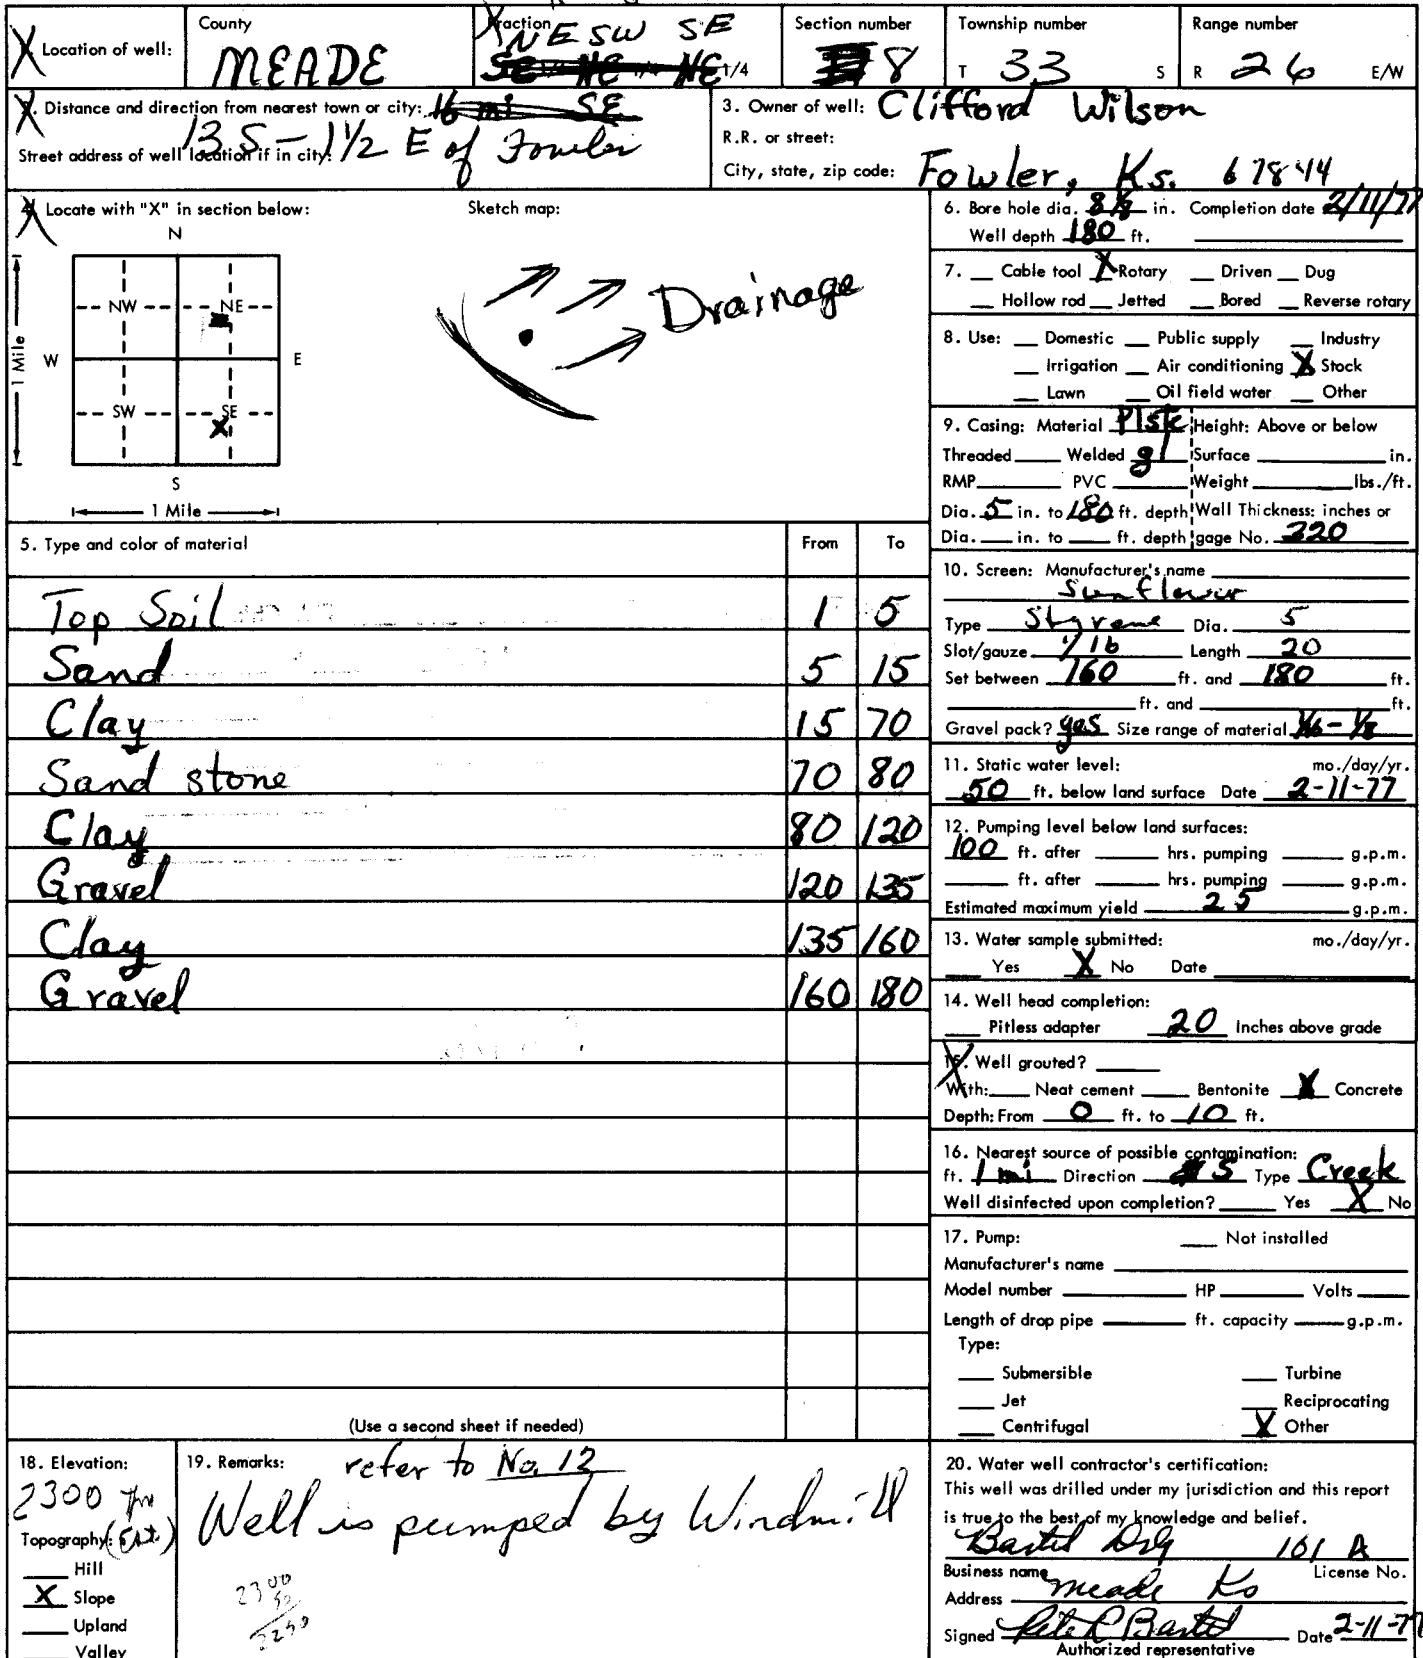 Location of well:
County
MEADE
Fraction
NE SW SE
SE 1/4 NE 1/4 NE 1/4
Section number
8
Township number
T 33 S
Range number
R 26 E/W
2. Distance and direction from nearest town or city: 16 mi SE
13 S - 1 1/2 E of Fowler
Street address of well location if in city:
3. Owner of well: Clifford Wilson
R.R. or street:
City, state, zip code: Fowler, Ks. 67844
4. Locate with "X" in section below:
Sketch map:
N
NW NE
W E
1 Mile
SW SE
X
S
1 Mile
Drainage
5. Type and color of material From To
Top Soil 1 5
Sand 5 15
Clay 15 70
Sand stone 70 80
Clay 80 120
Gravel 120 135
Clay 135 160
Gravel 160 180
(Use a second sheet if needed)
6. Bore hole dia. in. Completion date 2/11/77
Well depth 180 ft.
7. Cable tool X Rotary Driven Dug
Hollow rod Jetted Bored Reverse rotary
8. Use: Domestic Public supply Industry
Irrigation Air conditioning X Stock
Lawn Oil field water Other
9. Casing: Material Plstc Height: Above or below
Threaded Welded gl Surface in.
RMP PVC Weight lbs./ft.
Dia. 5 in. to 180 ft. depth Wall Thickness: inches or
Dia. in. to ft. depth gage No. 220
10. Screen: Manufacturer's name
Sunflower
Type Styrene Dia. 5
Slot/gauze 1/16 Length 20
Set between 160 ft. and 180 ft.
ft. and ft.
Gravel pack? yes Size range of material 1/16 - 1/8
11. Static water level: mo./day/yr.
50 ft. below land surface Date 2-11-77
12. Pumping level below land surfaces:
100 ft. after hrs. pumping g.p.m.
ft. after hrs. pumping g.p.m.
Estimated maximum yield 25 g.p.m.
13. Water sample submitted: mo./day/yr.
Yes X No Date
14. Well head completion:
Pitless adapter 20 Inches above grade
15. Well grouted?
With: Neat cement Bentonite X Concrete
Depth: From 0 ft. to 10 ft.
16. Nearest source of possible contamination:
ft. 1 mi Direction S Type Creek
Well disinfected upon completion? Yes X No
17. Pump: Not installed
Manufacturer's name
Model number HP Volts
Length of drop pipe ft. capacity g.p.m.
Type:
Submersible Turbine
Jet Reciprocating
Centrifugal X Other
18. Elevation:
2300
Topography: (Est.)
Hill
X Slope
Upland
Valley
19. Remarks: refer to No. 12
Well is pumped by Windmill
2300
50
2250
20. Water well contractor's certification:
This well was drilled under my jurisdiction and this report
is true to the best of my knowledge and belief.
Bartel Drlg 101 A
Business name License No.
Address Meade Ks
Signed Pete R Bartel Date 2-11-77
Authorized representative